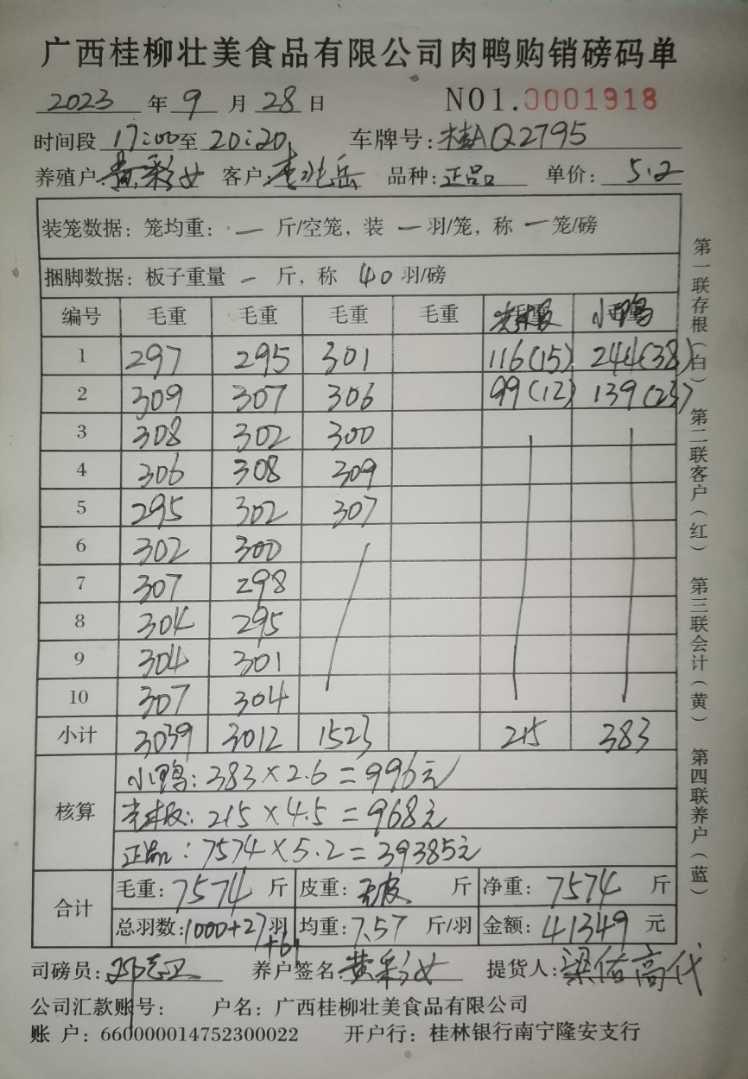 广西桂柳壮美食品有限公司肉鸭购销磅码单
2023 年 9 月 28 日 NO1.0001918
时间段 17:00 至 20:20 车牌号: 桂AQ2795
养殖户: 黄彩女 客户: 岳 品种: 正品 单价: 5.2
装笼数据: 笼均重: 一 斤/空笼, 装 一 羽/笼, 称 一 笼/磅
捆脚数据: 板子重量 一 斤, 称 40 羽/磅
编号 毛重 毛重 毛重 毛重 光板 小鸭
1 297 295 301 116(15) 244(38)
2 309 307 306 99(12) 139(23)
3 308 302 300
4 306 308 309
5 295 302 307
6 302 300
7 307 298
8 304 295
9 304 301
10 307 304
小计 3039 3012 1523 215 383
核算
小鸭: 383×2.6=996元
光板: 215×4.5=968元
正品: 7574×5.2=39385元
合计
毛重: 7574 斤 皮重: 无皮 斤 净重: 7574 斤
总羽数: 1000+27 羽 +61 均重: 7.57 斤/羽 金额: 41349 元
司磅员: 邓 养户签名: 黄彩女 提货人: 梁佑高代
公司汇款账号: 户名: 广西桂柳壮美食品有限公司
账 户: 660000014752300022 开户行: 桂林银行南宁隆安支行
第一联存根(白)
第二联客户(红)
第三联会计(黄)
第四联养户(蓝)